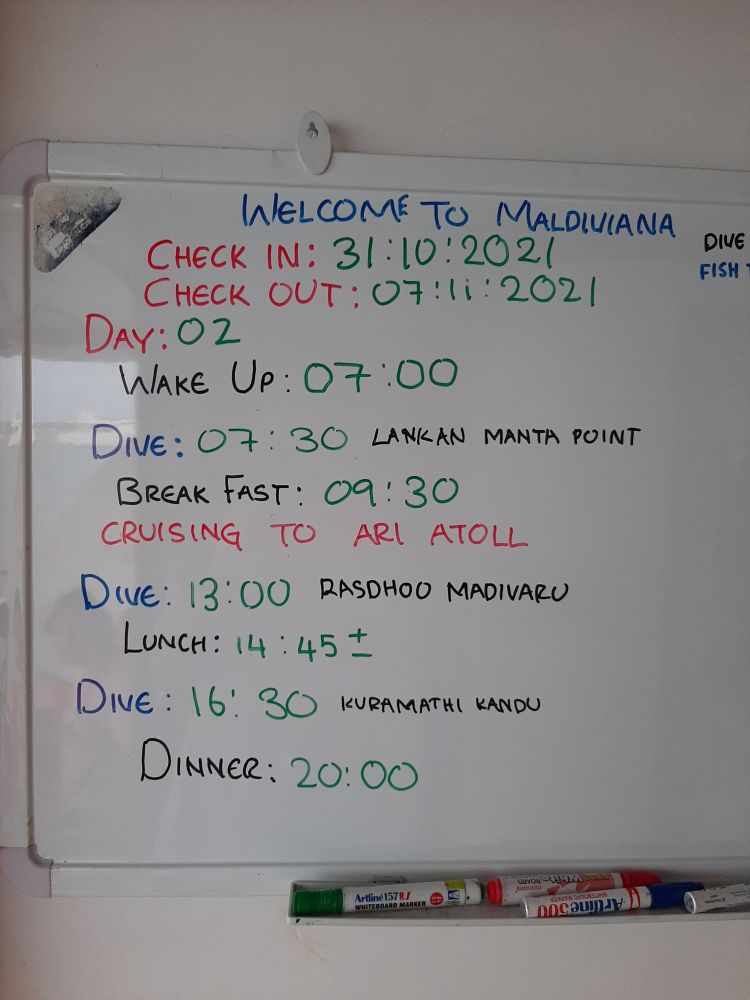 WELCOME TO MALDIVIANA
CHECK IN: 31:10:2021
CHECK OUT: 07:11:2021
DAY: 02
WAKE UP: 07:00
DIVE: 07:30 LANKAN MANTA POINT
BREAK FAST: 09:30
CRUISING TO ARI ATOLL
DIVE: 13:00 RASDHOO MADIVARU
LUNCH: 14:45 ±
DIVE: 16:30 KURAMATHI KANDU
DINNER: 20:00
DIVE
FISH
Artline 157R
WHITEBOARD MARKER
Artline 500
WHITEBOARD MARKER